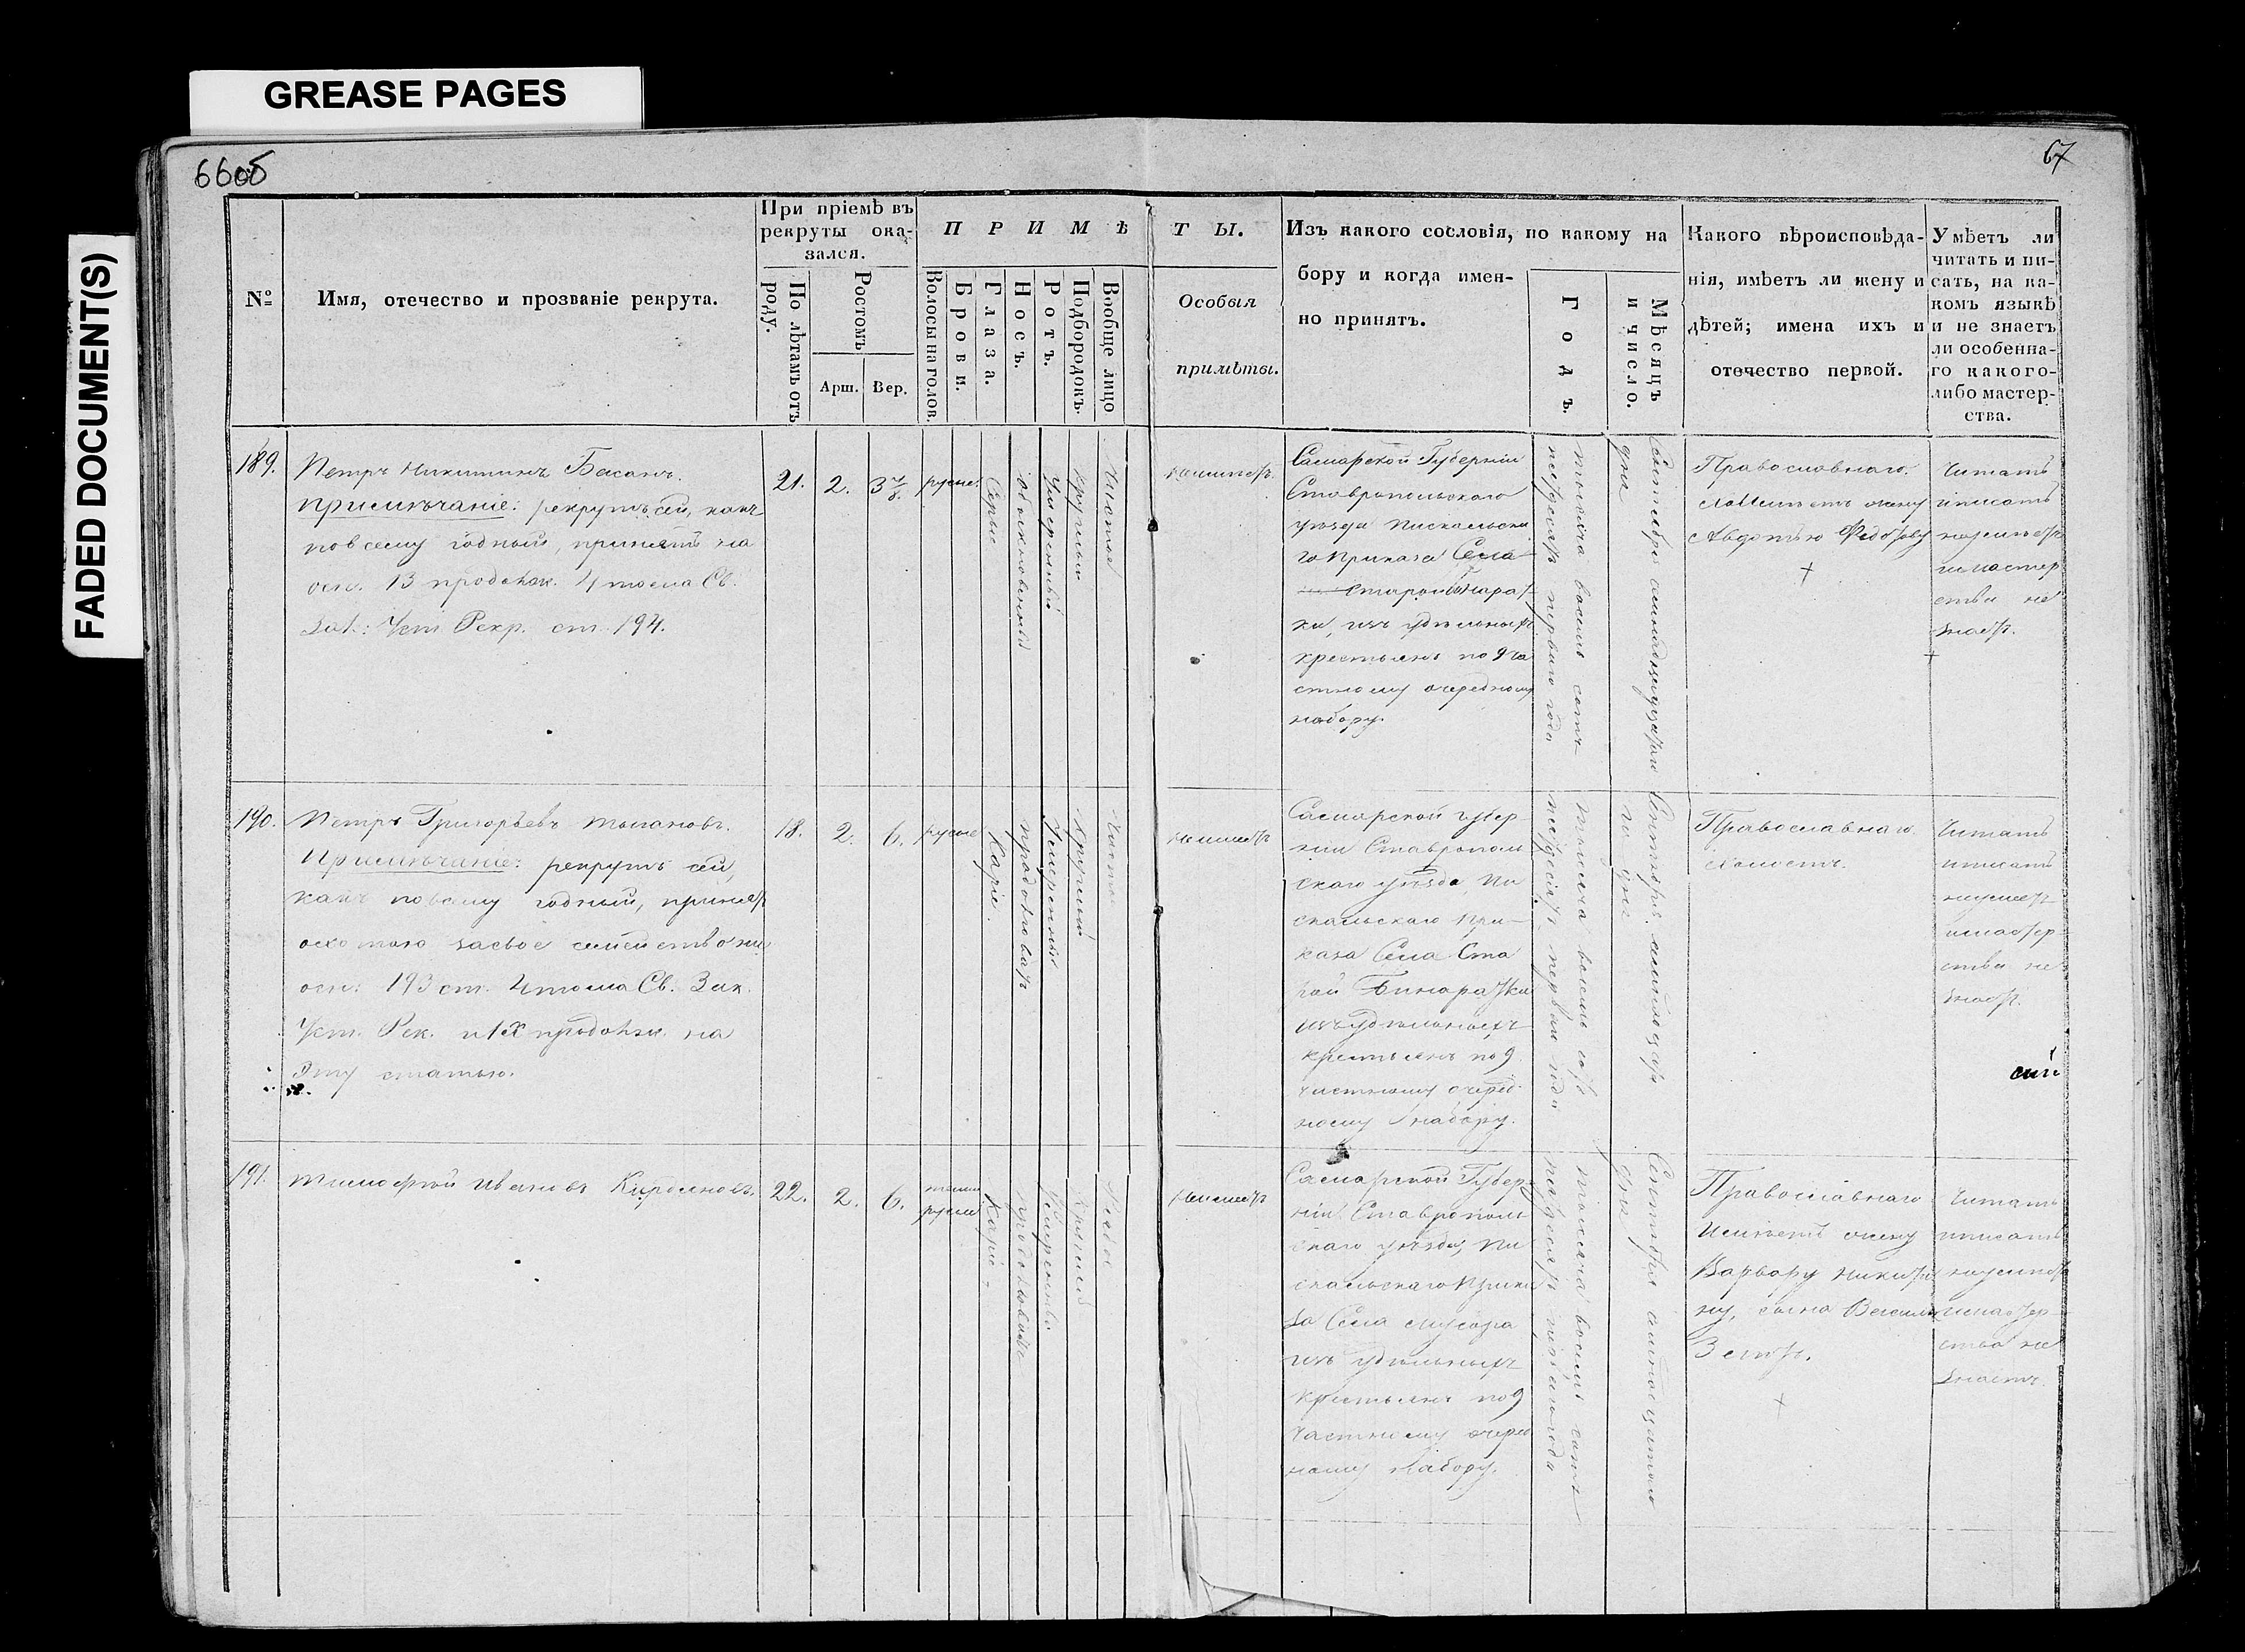 GREASE PAGES
FADED DOCUMENT(S)
66об
67
№
Имя, отечество и прозваніе рекрута.
При пріемѣ въ
рекруты ока-
зался.
По лѣтамъ отъ
роду.
Ростомъ
Арш.
Вер.
ПРИМѢ
ТЫ.
Волосы на голов.
Брови.
Глаза.
Носъ.
Ротъ.
Подбородокъ.
Вообще лицо
Особыя
примѣты.
Изъ какого сословія, по какому на
бору и когда имен-
но принятъ.
Годъ.
Мѣсяцъ
и число.
Какого вѣроисповѣда-
нія, имѣетъ ли жену и
дѣтей; имена ихъ и
отечество первой.
Умѣетъ ли
читать и пи-
сать, на ка-
комъ языкѣ
и не знаетъ
ли особенна-
го какого-
либо мастер-
ства.
189.
Петръ Никитинъ
Примѣчаніе: рекрутъ сей, какъ
повсему годный, принятъ на
осн. 13 продолж. 4 тома Св.
Зак: Уст Рекр. ст. 194.
21.
2.
3 7/8.
русые.
Сѣрые
обыкновенный
умѣренный
круглый
Чистое
неимѣетъ
Самарской Губерніи
Ставропольскаго
уѣзда Пискальска
го Приказа Села
ки, изъ удѣльныхъ
крестьянъ по 9 ча
стному очередному
набору.
тысяча восемь сотъ
пятдесятъ перваго года
дня
Православнаго.
Авдотью Федорову
Читать
и писать
неумѣетъ
и мастер
ства не
знаетъ.
190.
Петръ Григорьевъ Толмановъ.
Примѣчаніе: рекрутъ сей,
какъ повсему годный, принятъ
охотою засвое семейство на
осн: 193 ст. 4 тома Св. Зак.
Уст. Рек. и 1х продолж. на
эту статью.
18.
2.
6.
русые
Каріе.
продолговатъ
Умѣренный
Круглый
Чисто
неимѣетъ
Самарской губер
ніи Ставрополь
скаго уѣзда, Пи
скальскаго При
каза Села Ста
рой Бинарадки
изъ удѣльныхъ
крестьянъ по 9
частному очеред
ному набору.
тысяча восемь сотъ
пятдесятъ перваго года
го дня
Православнаго
холостъ.
Читать
и писать
неумѣетъ
и мастер
ства не
знаетъ.
191.
Тимофей Ивановъ
22.
2.
6.
темно
русые
Каріе
продолговатый
Умѣренный
Круглый
неимѣетъ
Самарской Губер
ніи Ставрополь
скаго уѣзда, Пи
скальскаго Прика
за Села Мусорка
изъ удѣльныхъ
крестьянъ по 9
частному очеред
ному набору.
тысяча восемь сотъ
пятдесятъ перваго года
дня
Православнаго
Имѣетъ жену
Варвару Никити
ну, сына Василія
3 лѣтъ.
Читать
и писать
неумѣетъ
и мастер
ства не
знаетъ.